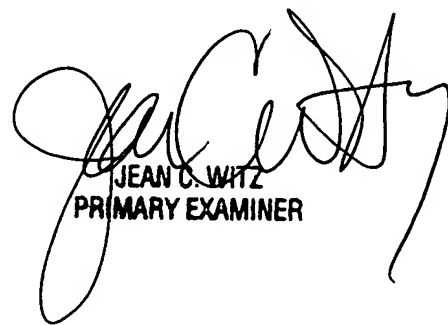 JEAN C. WITZ
PRIMARY EXAMINER